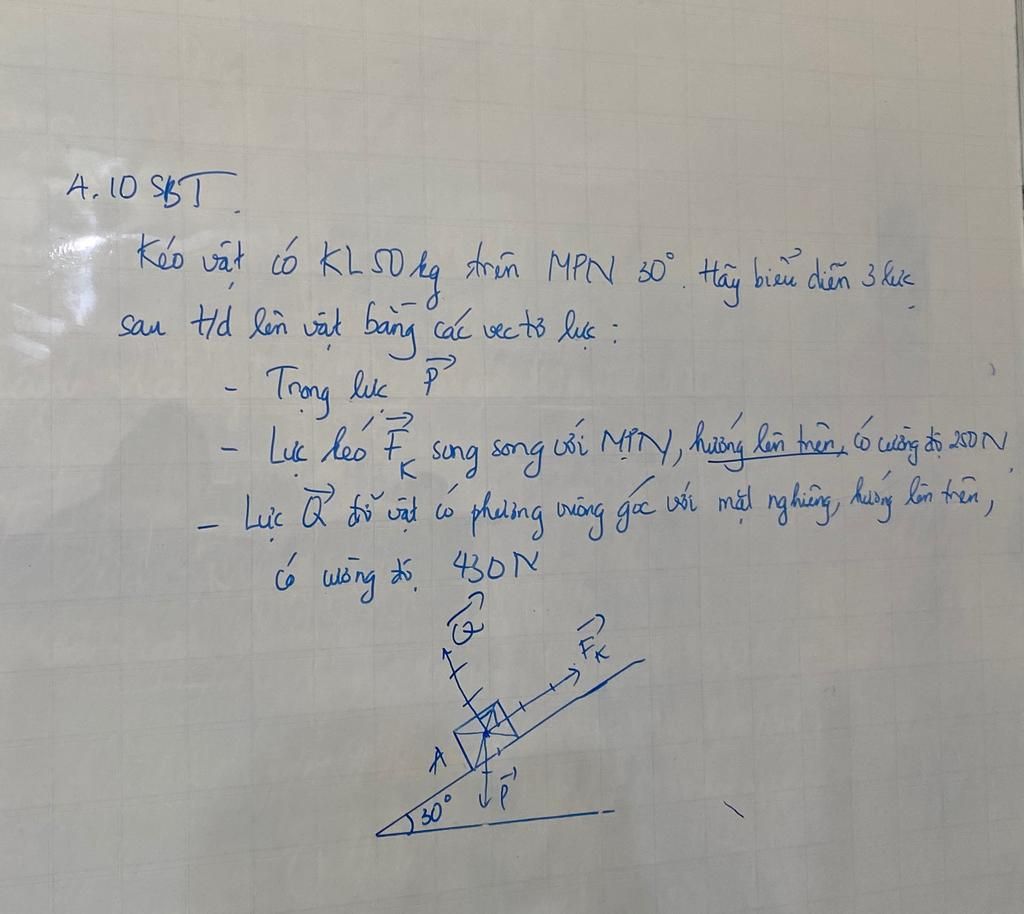 4.10 SBT.
Kéo vật có KL 50 kg trên MPN 30°. Hãy biểu diễn 3 lực
sau t/d lên vật bằng các vectơ lực :
- Trọng lực P
- Lực kéo F_K song song với MPN, hướng lên trên, có cường độ 250 N
- Lực Q đỡ vật có phương vuông góc với mặt nghiêng, hướng lên trên,
có cường độ 430 N
Q
F_K
A
P
30°